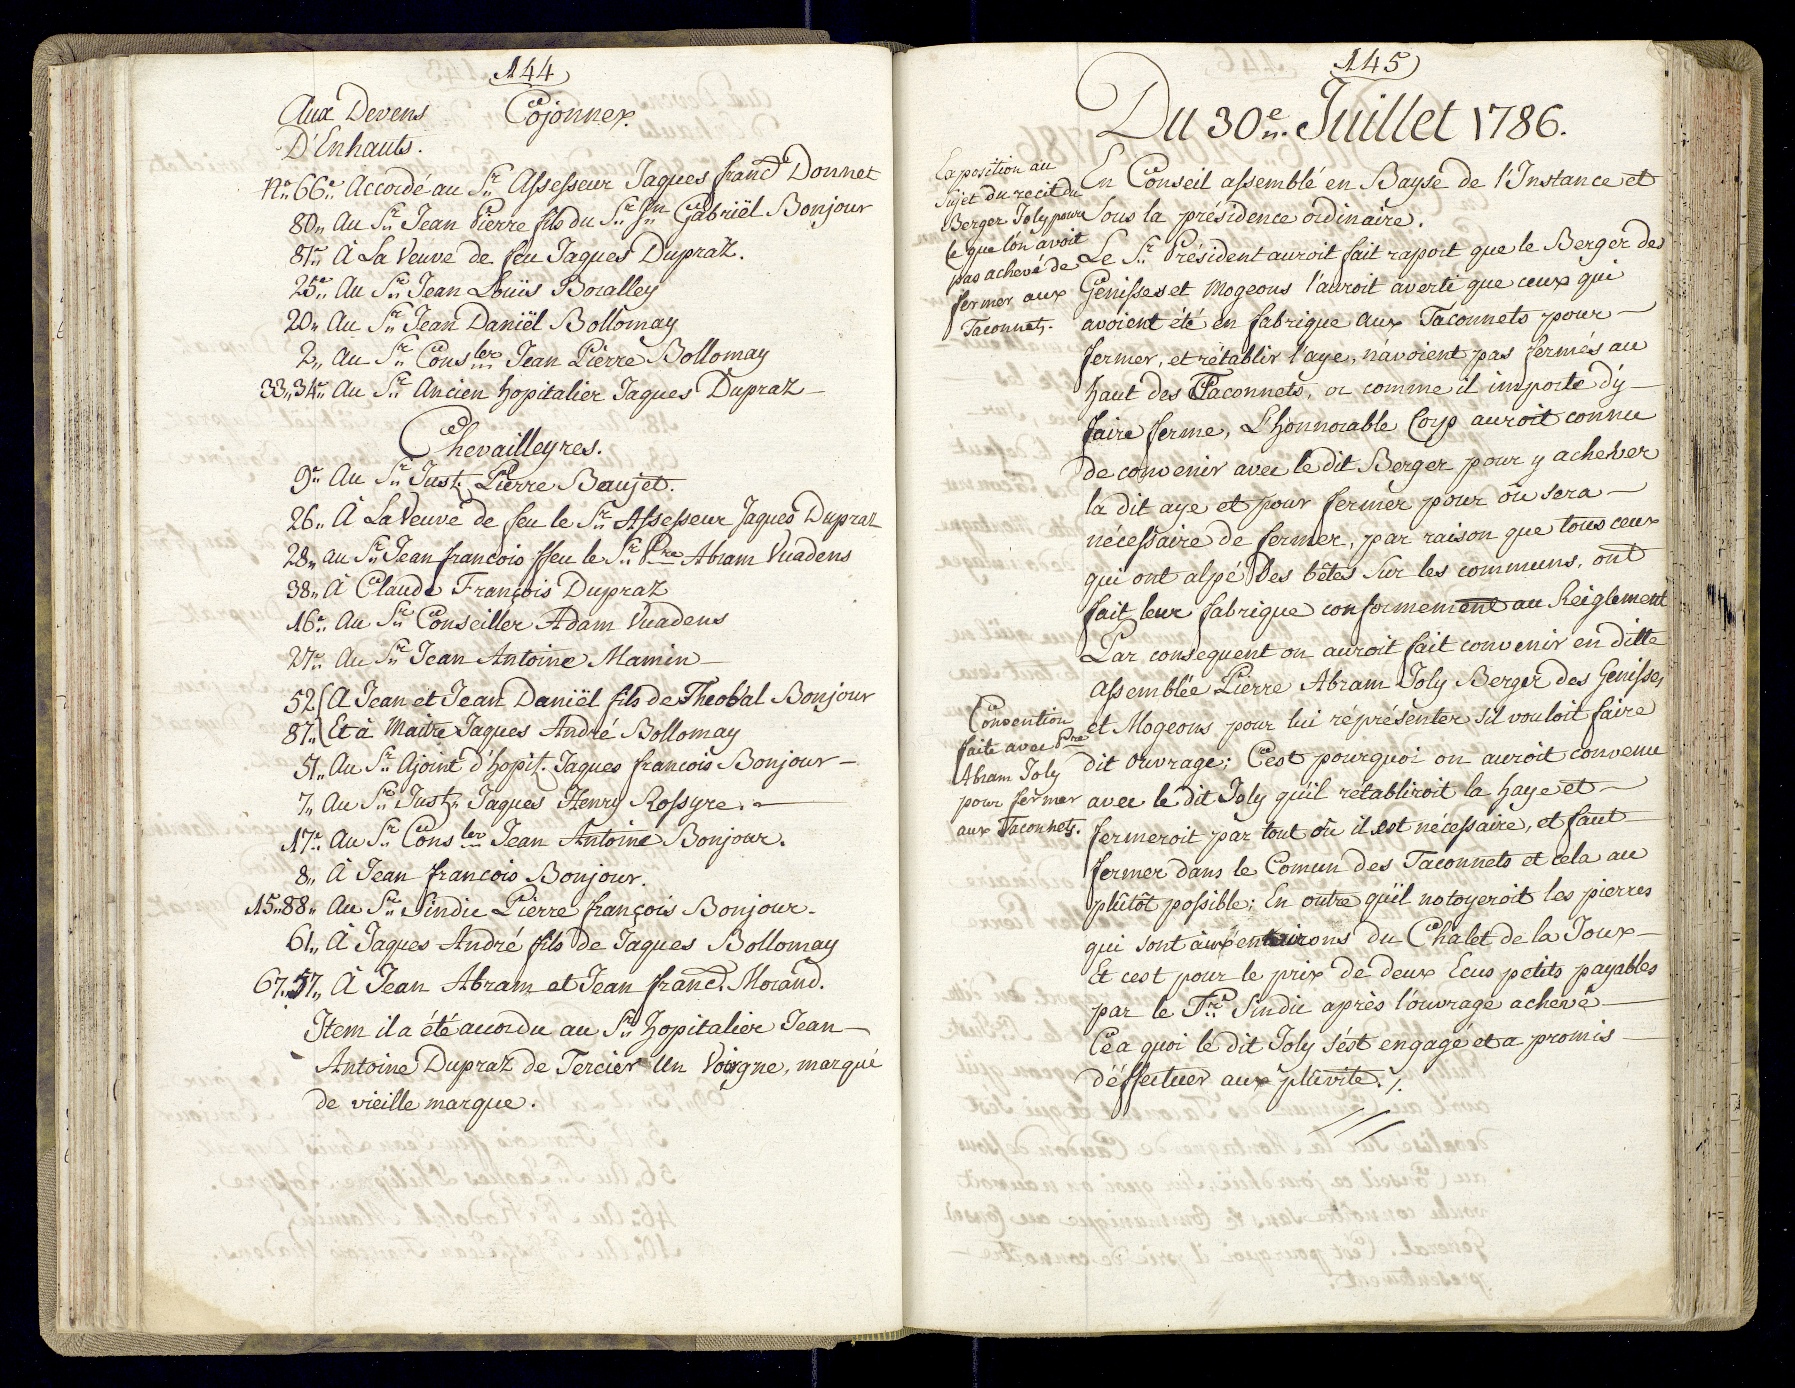 144
Aux Devens Cojonnex.
D'Enhauts.
No. 66e. Accordé au Sr. Assesseur Jaques francd Donnet
80,, Au Sr. Jean Pierre fils du Sr. Jn Gabriël Bonjour
81e,, À La Veuve de feu Jaques Dupraz.
25e,, Au Sr. Jean Louïs Boralley
20,, Au Sr. Jean Daniël Bollomay
2,, Au Sr. Consler Jean Pierre Bollomay
33,,34e,, Au Sr. Ancien hopitalier Jaques Dupraz —
Chevailleyres.
9e Au Sr. Just. Pierre Baujet.
26,, À La Veuve de feu le Sr. Assesseur Jaques Dupraz
28,, au Sr. Jean francois ffeu le Sr. Pre Abram Vuadens
38,, À Claude François Dupraz
16e,, Au Sr. Conseiller Adam Vuadens
27e,, Au Sr. Jean Antoine Mamin —
52 ( A Jean et Jean Daniël fils de Theobal Bonjour
87,, ( Et à Maitre Jaques André Bollomay
51,, Au Sr. Ajoint d'hopit. Jaques francois Bonjour —
7,, Au Sr. Just,, Jaques Henry Rossyre. —
17e Au Sr. Consler Jean Antoine Bonjour.
8,, À Jean francois Bonjour.
15,,88,, Au Sr. Sindic Pierre françois Bonjour.
61,, À Jaques André fils de Jaques Bollomay
67,,57,, À Jean Abram et Jean francd. Morand.
Item il a été accordu au Sr. hopitalier Jean —
Antoine Dupraz de Tercier Un Voirgne, marqué
de vieille marque.
145
Du 30e. Juillet 1786.
Exposition au
Sujet du recit du
Berger Joly pour
le que l'on avoit
pas achevé de
fermer aux
Taconnets.
En Conseil assemblé en Bayse de l'Instance et
Sous la présidence ordinaire.
Le Sr. Président auroit fait raport que le Berger des
Génisses et Mogeons l'auroit averti que ceux qui
avoient été en fabrique aux Taconnets pour —
fermer, et rétablir l'aye, n'avoient pas fermés au
haut des Taconnets, or comme il importe d'y —
faire ferme, L'honnorable Corp auroit connu
de convenir avec le dit Berger pour y achever
la dit aye et pour fermer pour où sera —
nécessaire de fermer, par raison que tous ceux
qui ont alpé Des bêtes Sur les communs, ont
fait leur fabrique conformement au Reiglement
Par consequent on auroit fait convenir en ditte
Assemblée Pierre Abram Joly Berger des Genisses
et Mogeons pour lui réprésenter sil vouloit faire
dit Ouvrage; C'est pourquoi on auroit convenu
avec le dit Joly qu'il retabliroit la haye et —
fermeroit par tout où il est nécessaire, et faut —
fermer dans le Comun des Taconnets et cela au
plûtôt possible; En outre qu'il notoyeroit les pierres
qui sont aux environs du Chalet de la Joux —
Et cest pour le prix de deux Ecus petits payables
par le Sr. Sindic après l'ouvrage achevé —
Ce a quoi le dit Joly s'est engagé et a promis —
d'éffectuer aux plûvite. /.
Convention
faite avec Pre
Abram Joly
pour fermer
aux Taconnets.